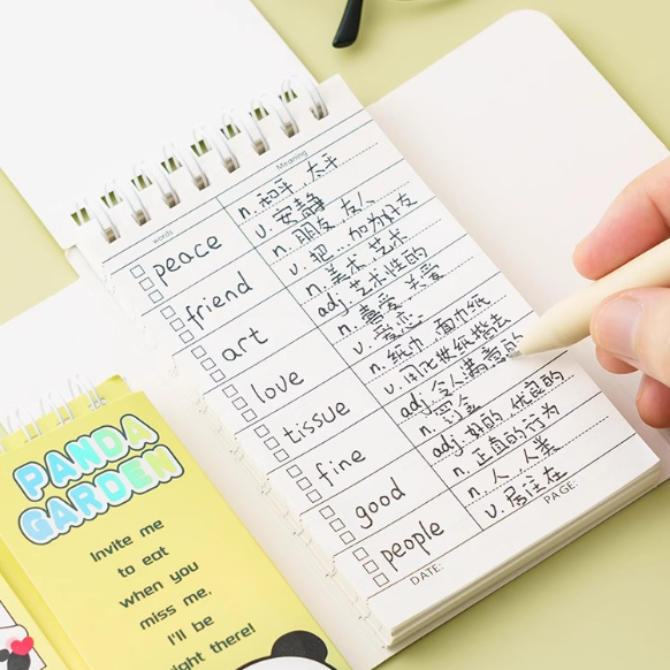 words Meaning
peace n. 和平,太平
v. 安静
friend n. 朋友,友人
v. 把...加为好友
art n. 美术,艺术
adj. 艺术性的
love n. 喜爱,关爱
v. 爱恋
tissue n. 纸巾,面巾纸
v. 用化妆纸揩去
fine adj. 令人满意的
n. 罚金
good adj. 好的 优良的
n. 正直的行为
people n. 人,人类
v. 居住在
DATE: PAGE:
PANDA
GARDEN
Invite me
to eat
when you
miss me,
I'll be
right there!